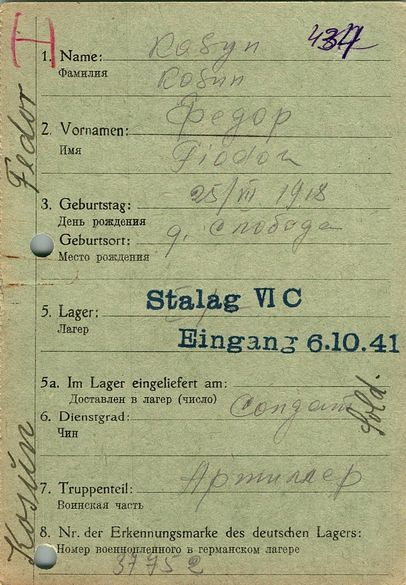 H
437
1. Name:
Фамилия
2. Vornamen: Федор
Имя Fiodor
3. Geburtstag: 25/III 1918
День рождения
Geburtsort: д. Слобода
Место рождения
5. Lager: Stalag VI C
Лагер Eingang 6.10.41
5a. Im Lager eingeliefert am:
Доставлен в лагер (число)
6. Dienstgrad: Солдат Sold.
Чин
7. Truppenteil: Артиллер
Воинская часть
8. Nr. der Erkennungsmarke des deutschen Lagers:
Номер военнопленного в германском лагере
37752
Fedor